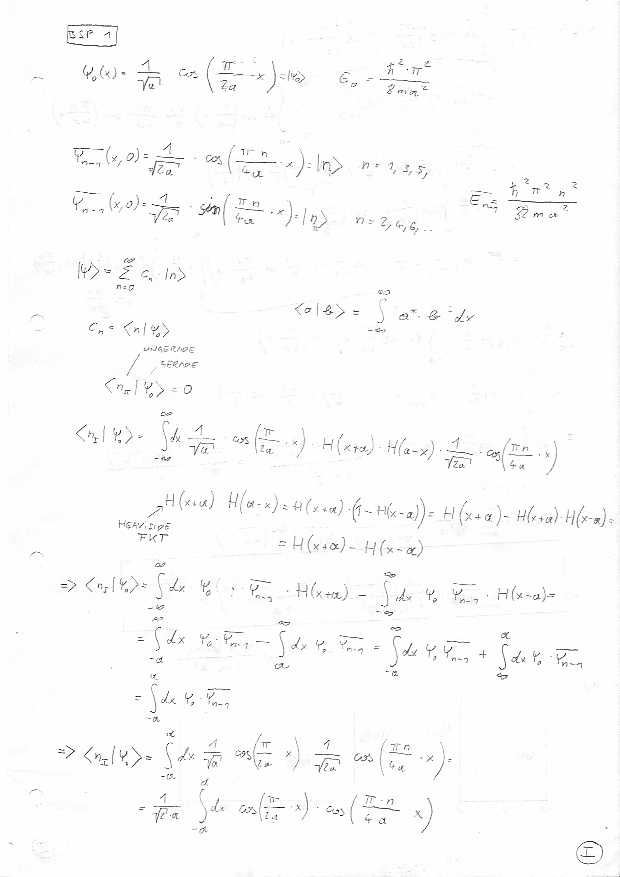 BSP 1
Ψ₀(x) = 1/√a cos(π/2a · x) = |Ψ₀⟩ E₀ = ħ²·π²/8ma²
Ψ̅ₙ₋₁(x,0) = 1/√2a · cos(πn/4a · x) = |n_I⟩ n = 1, 3, 5,
Ψ̅ₙ₋₁(x,0) = 1/√2a · sin(πn/4a · x) = |n_II⟩ n = 2, 4, 6, ... E̅ₙ₋₁ = ħ²π²n²/32ma²
|Ψ⟩ = ∑_{n=0}^{∞} cₙ |n⟩
⟨a|b⟩ = ∫_{-∞}^{∞} a* · b dx
cₙ = ⟨n|Ψ₀⟩
UNGERADE
GERADE
⟨n_II|Ψ₀⟩ = 0
⟨n_I|Ψ₀⟩ = ∫_{-∞}^{∞} dx 1/√a · cos(π/2a · x) · H(x+a) · H(a-x) · 1/√2a · cos(πn/4a · x)
H(x+a) H(a-x) = H(x+a) · (1 - H(x-a)) = H(x+a) - H(x+a) · H(x-a) =
HEAVISIDE
FKT
= H(x+a) - H(x-a)
=> ⟨n_I|Ψ₀⟩ = ∫_{-∞}^{∞} dx Ψ₀ · Ψ̅ₙ₋₁ · H(x+a) - ∫_{-∞}^{∞} dx Ψ₀ Ψ̅ₙ₋₁ · H(x-a) =
= ∫_{-a}^{∞} dx Ψ₀ · Ψ̅ₙ₋₁ - ∫_{a}^{∞} dx Ψ₀ Ψ̅ₙ₋₁ = ∫_{-a}^{∞} dx Ψ₀ Ψ̅ₙ₋₁ + ∫_{∞}^{a} dx Ψ₀ · Ψ̅ₙ₋₁
= ∫_{-a}^{a} dx Ψ₀ · Ψ̅ₙ₋₁
=> ⟨n_I|Ψ₀⟩ = ∫_{-a}^{a} dx 1/√a cos(π/2a x) · 1/√2a cos(πn/4a · x) =
= 1/√2·a ∫_{-a}^{a} dx cos(π/2a · x) · cos(π·n/4a x)
I